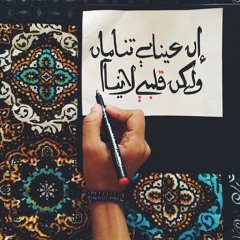 إن عيناي تنامان
ولكن قلبي لا ينام